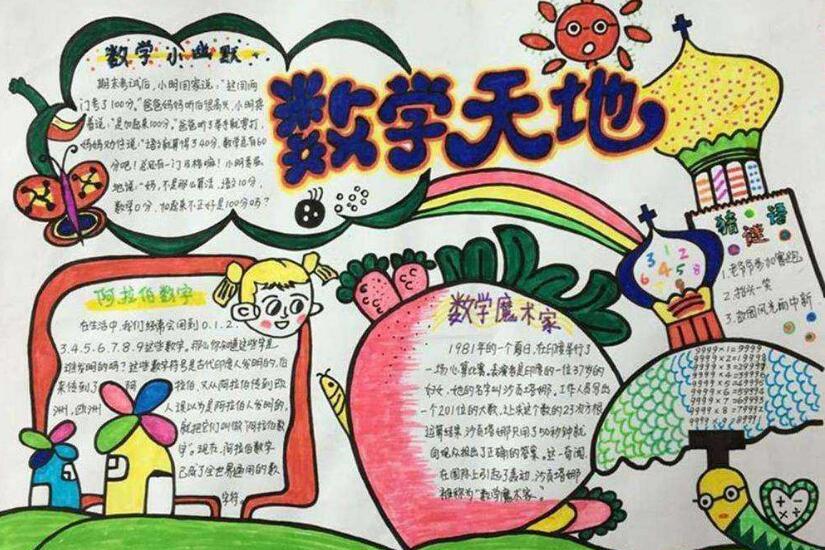 数学天地
数学小幽默
期末考试后,小明回家说:"这回两
门考了100分。"爸爸妈妈听后很高兴,小明接
着说:"是加起来100分。"爸爸听了举手就要打,
妈妈劝住说:"语文就算得了40分,数学总有60
分吧!总还有一门及格嘛!小明委屈
地说:"妈,不是那么算法,语文10分,
数学0分,加起来不正好是100分吗?
猜谜语
1.老爷爷参加赛跑
2.抬头一笑
3.故国风光雨中新
3 1 2
6 4 5 8
阿拉伯数字
在生活中,我们经常会用到0.1.2.
3.4.5.6.7.8.9这些数字。那么你知道这些数字是
谁发明的吗?这些数字符号是古代印度人发明的,后
来传到了阿拉伯,又从阿拉伯传到欧
洲,欧洲人误以为是阿拉伯人发明的,
就把它们叫做"阿拉伯数
字"。现在,阿拉伯数字
已成了全世界通用的数
字符.
数学魔术家
1981年的一个夏日,在印度举行了
一场心算比赛。表演者是印度的一位37岁的
妇女,她的名字叫沙贡塔娜。工作人员写出
一个201位的大数,让求这个数的23次方根
运算结果,沙贡塔娜只用了50秒钟就
向观众报出了正确的答案。这一奇闻,
在国际上引起了轰动,沙贡塔娜
被称为"数学魔术家"。
9999×1=9999
9999×2=19998
+ - × ÷